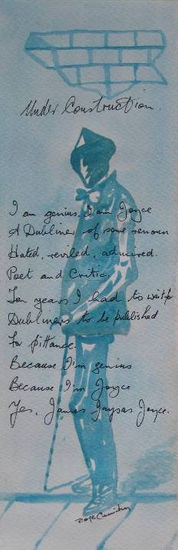 Under Construction.
I am genius. I am Joyce
A Dubliner of some renown
Hated, reviled, admired.
Poet and Critic
Ten years I had to wait for
Dubliners to be published
For pittance.
Because I'm genius
Because I'm Joyce
Yes, James Joyce.